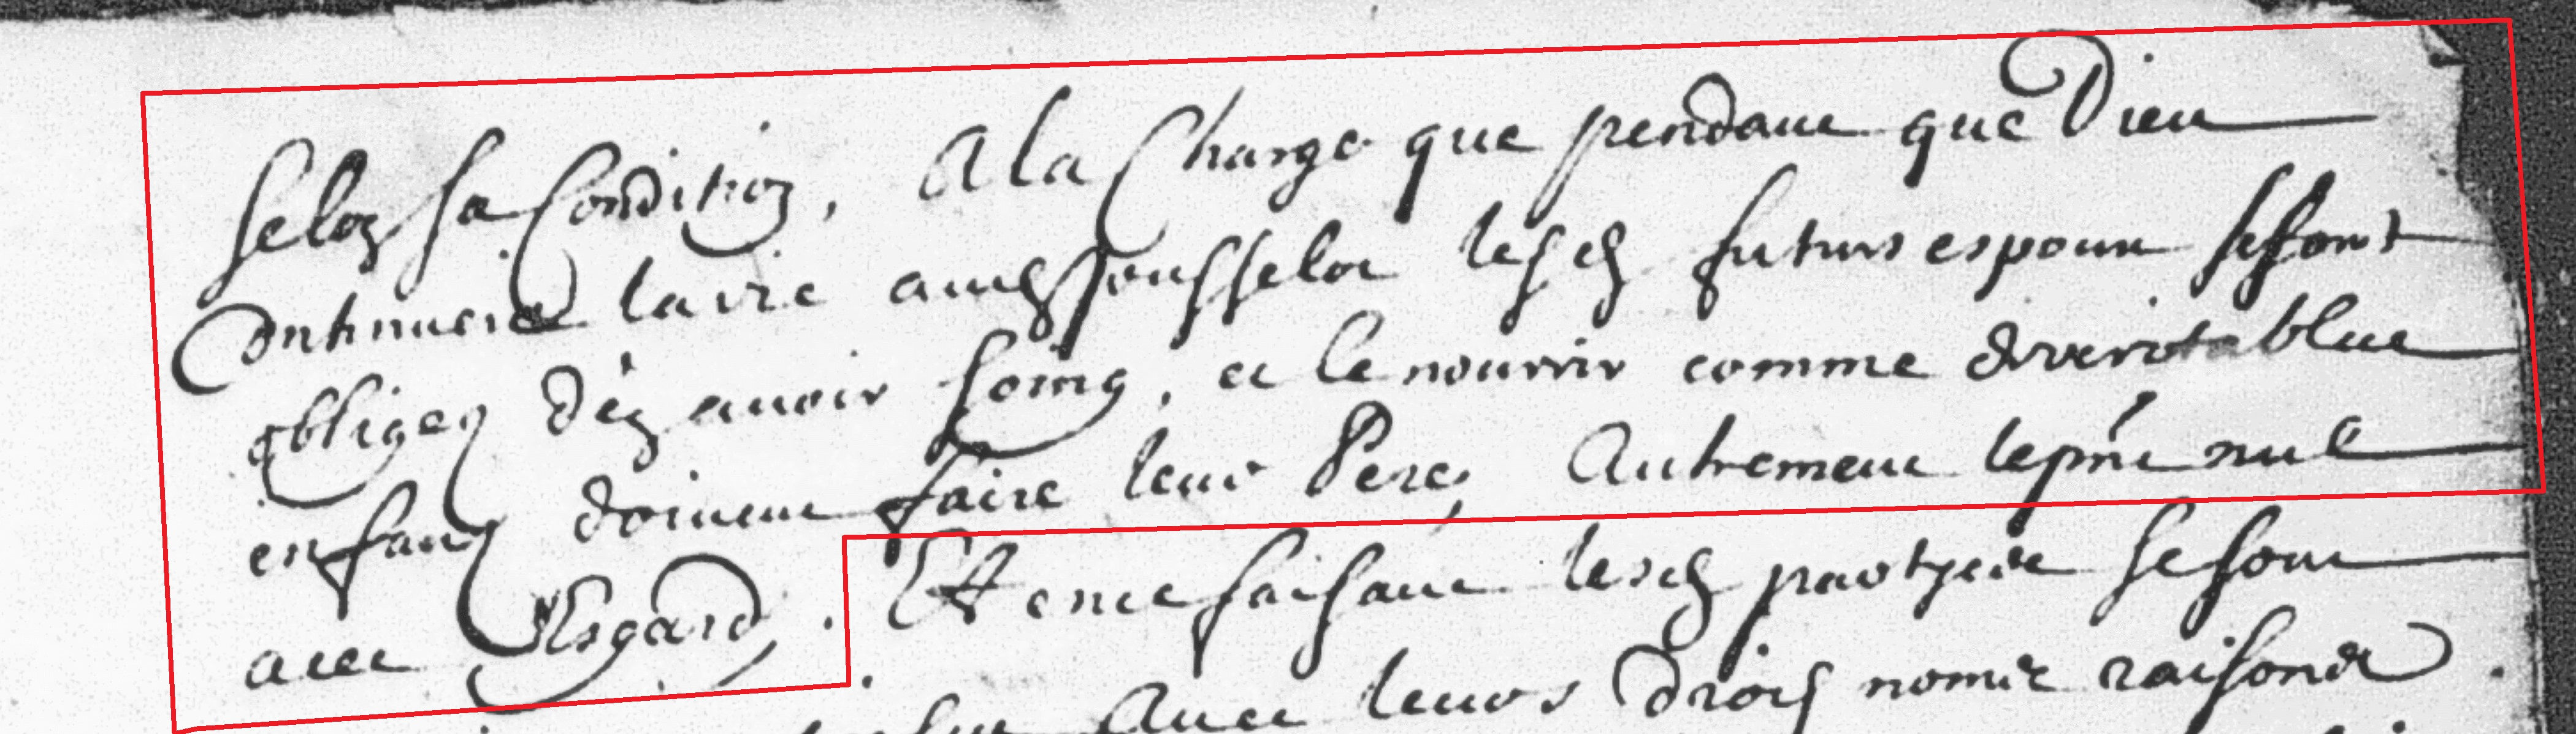 selon sa Condition, A la Charge que pendant que Dieu
Continuera la vie aud Jousselot lesd futurs espoux se sont
obligez d'en avoir soing, et le nourrir comme de veritables
enfans doivent faire leur Pere, Autrement le pñt nul
avec Esgard. Et en ce faisant lesd partyes se sont
Avec leurs droits noms raisons